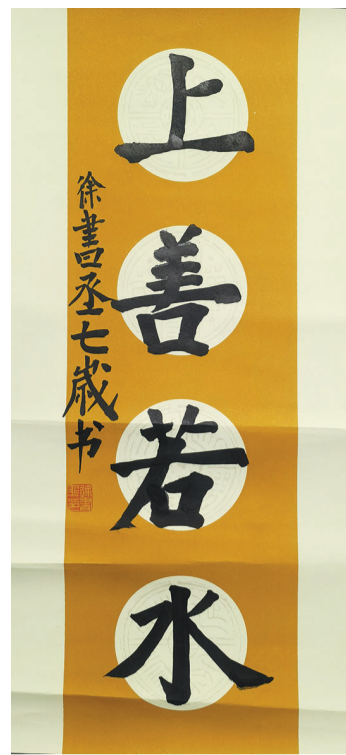 上善若水
徐書丞七歲书